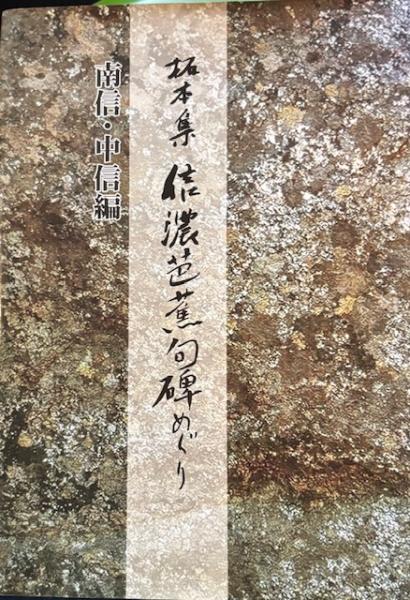 拓本集 信濃芭蕉句碑めぐり
南信・中信編